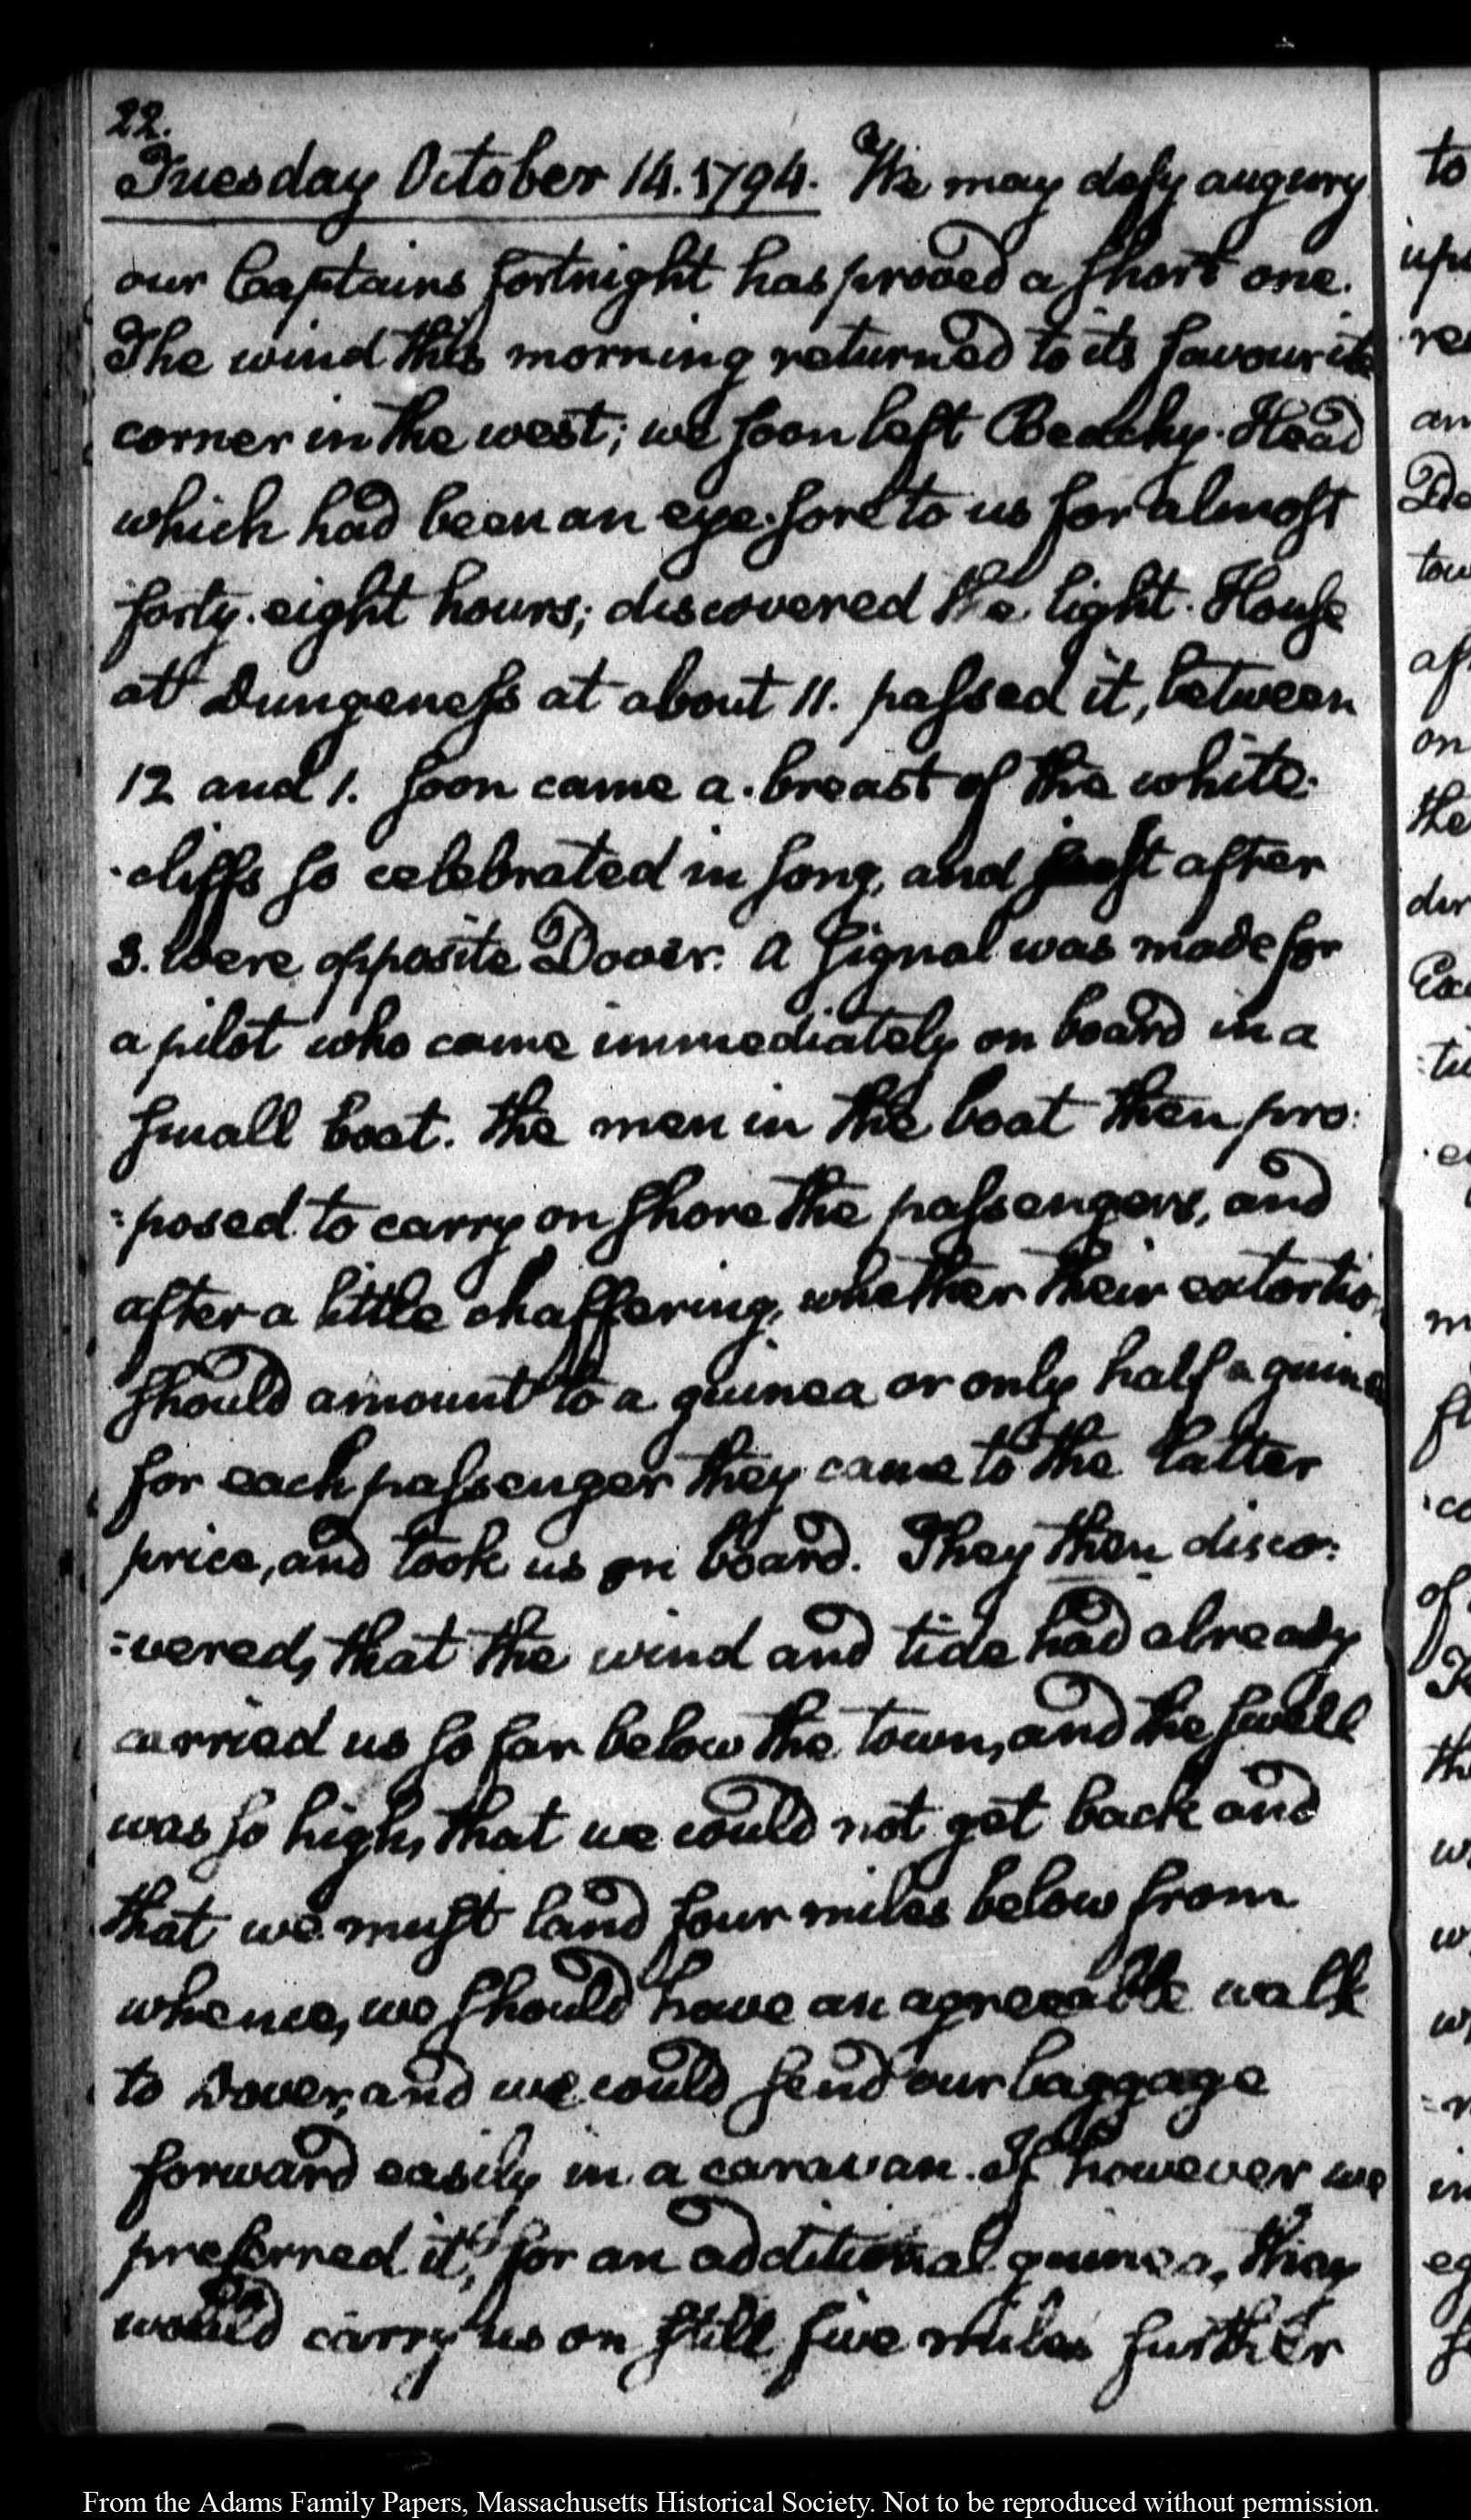 22.
Tuesday October 14. 1794. We may defy augury
our Captains fortnight has proved a short one.
The wind this morning returned to its favourite
corner in the west; we soon left Beachy-Head
which had been an eye-sore to us for almost
forty-eight hours; discovered the light-House
at Dungeness at about 11. passed it, between
12 and 1. soon came a-breast of the white-
-cliffs so celebrated in song, and just after
3. were opposite Dover. A signal was made for
a pilot who came immediately on board in a
small boat. The men in the boat then pro:
:posed to carry on shore the passengers, and
after a little chaffering, whether their extortio
should amount to a guinea or only half a guinea
for each passenger they came to the latter
price, and took us on board. They then disco:
:vered, that the wind and tide had already
carried us so far below the town, and the swell
was so high, that we could not get back and
that we must land four miles below from
whence, we should have an agreeable walk
to Dover, and we could send our baggage
forward easily in a caravan. If however we
preferred it, for an additional guinea, they
would carry us on still five miles further
to
ups
re
an
tow
on
the
dir
m
co
of
th
w
w
w
in
From the Adams Family Papers, Massachusetts Historical Society. Not to be reproduced without permission.